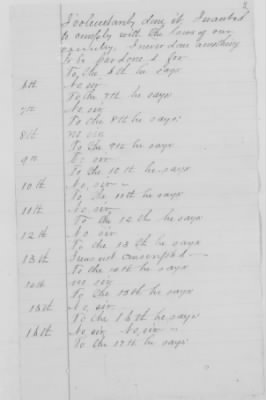 2
I voluntarily done it, I wanted
to comply with the laws of our
country. I never done anything
to be pardoned for
To, the 6th he says
6th No sir
To the 7th he says
7th No sir
To the 8th he says;
8th no sir
To the 9th he says
9th No sir
To the 10th he says
10th No, sir
To, the 11th he says
11th No, sir
To the 12th he says
12th No sir
To the 13th he says
13th I was not conscripted
To the 14th he says
14th no sir
To, the 15th he says
15th No, sir
To the 16th he says
16th No, sir No, sir
To the 17th he says